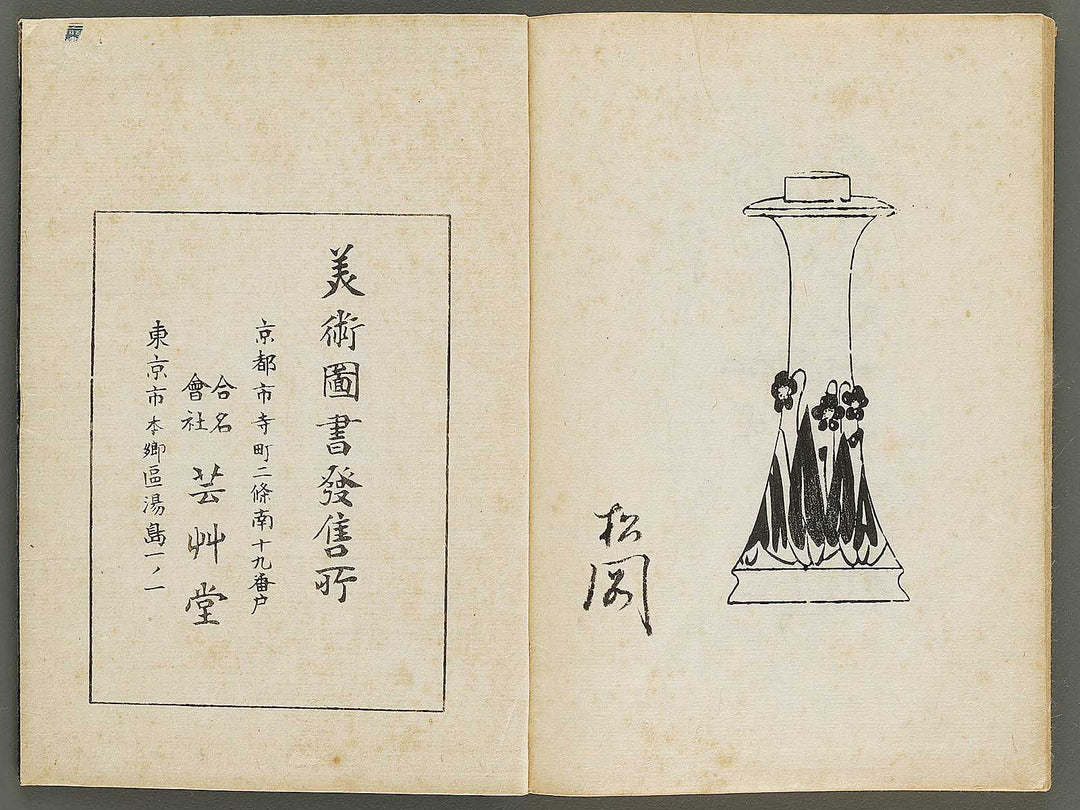 松岡
美術圖書發售所
京都市寺町二條南十九番戸
合名會社 芸艸堂
東京市本鄉區湯島一ノ一